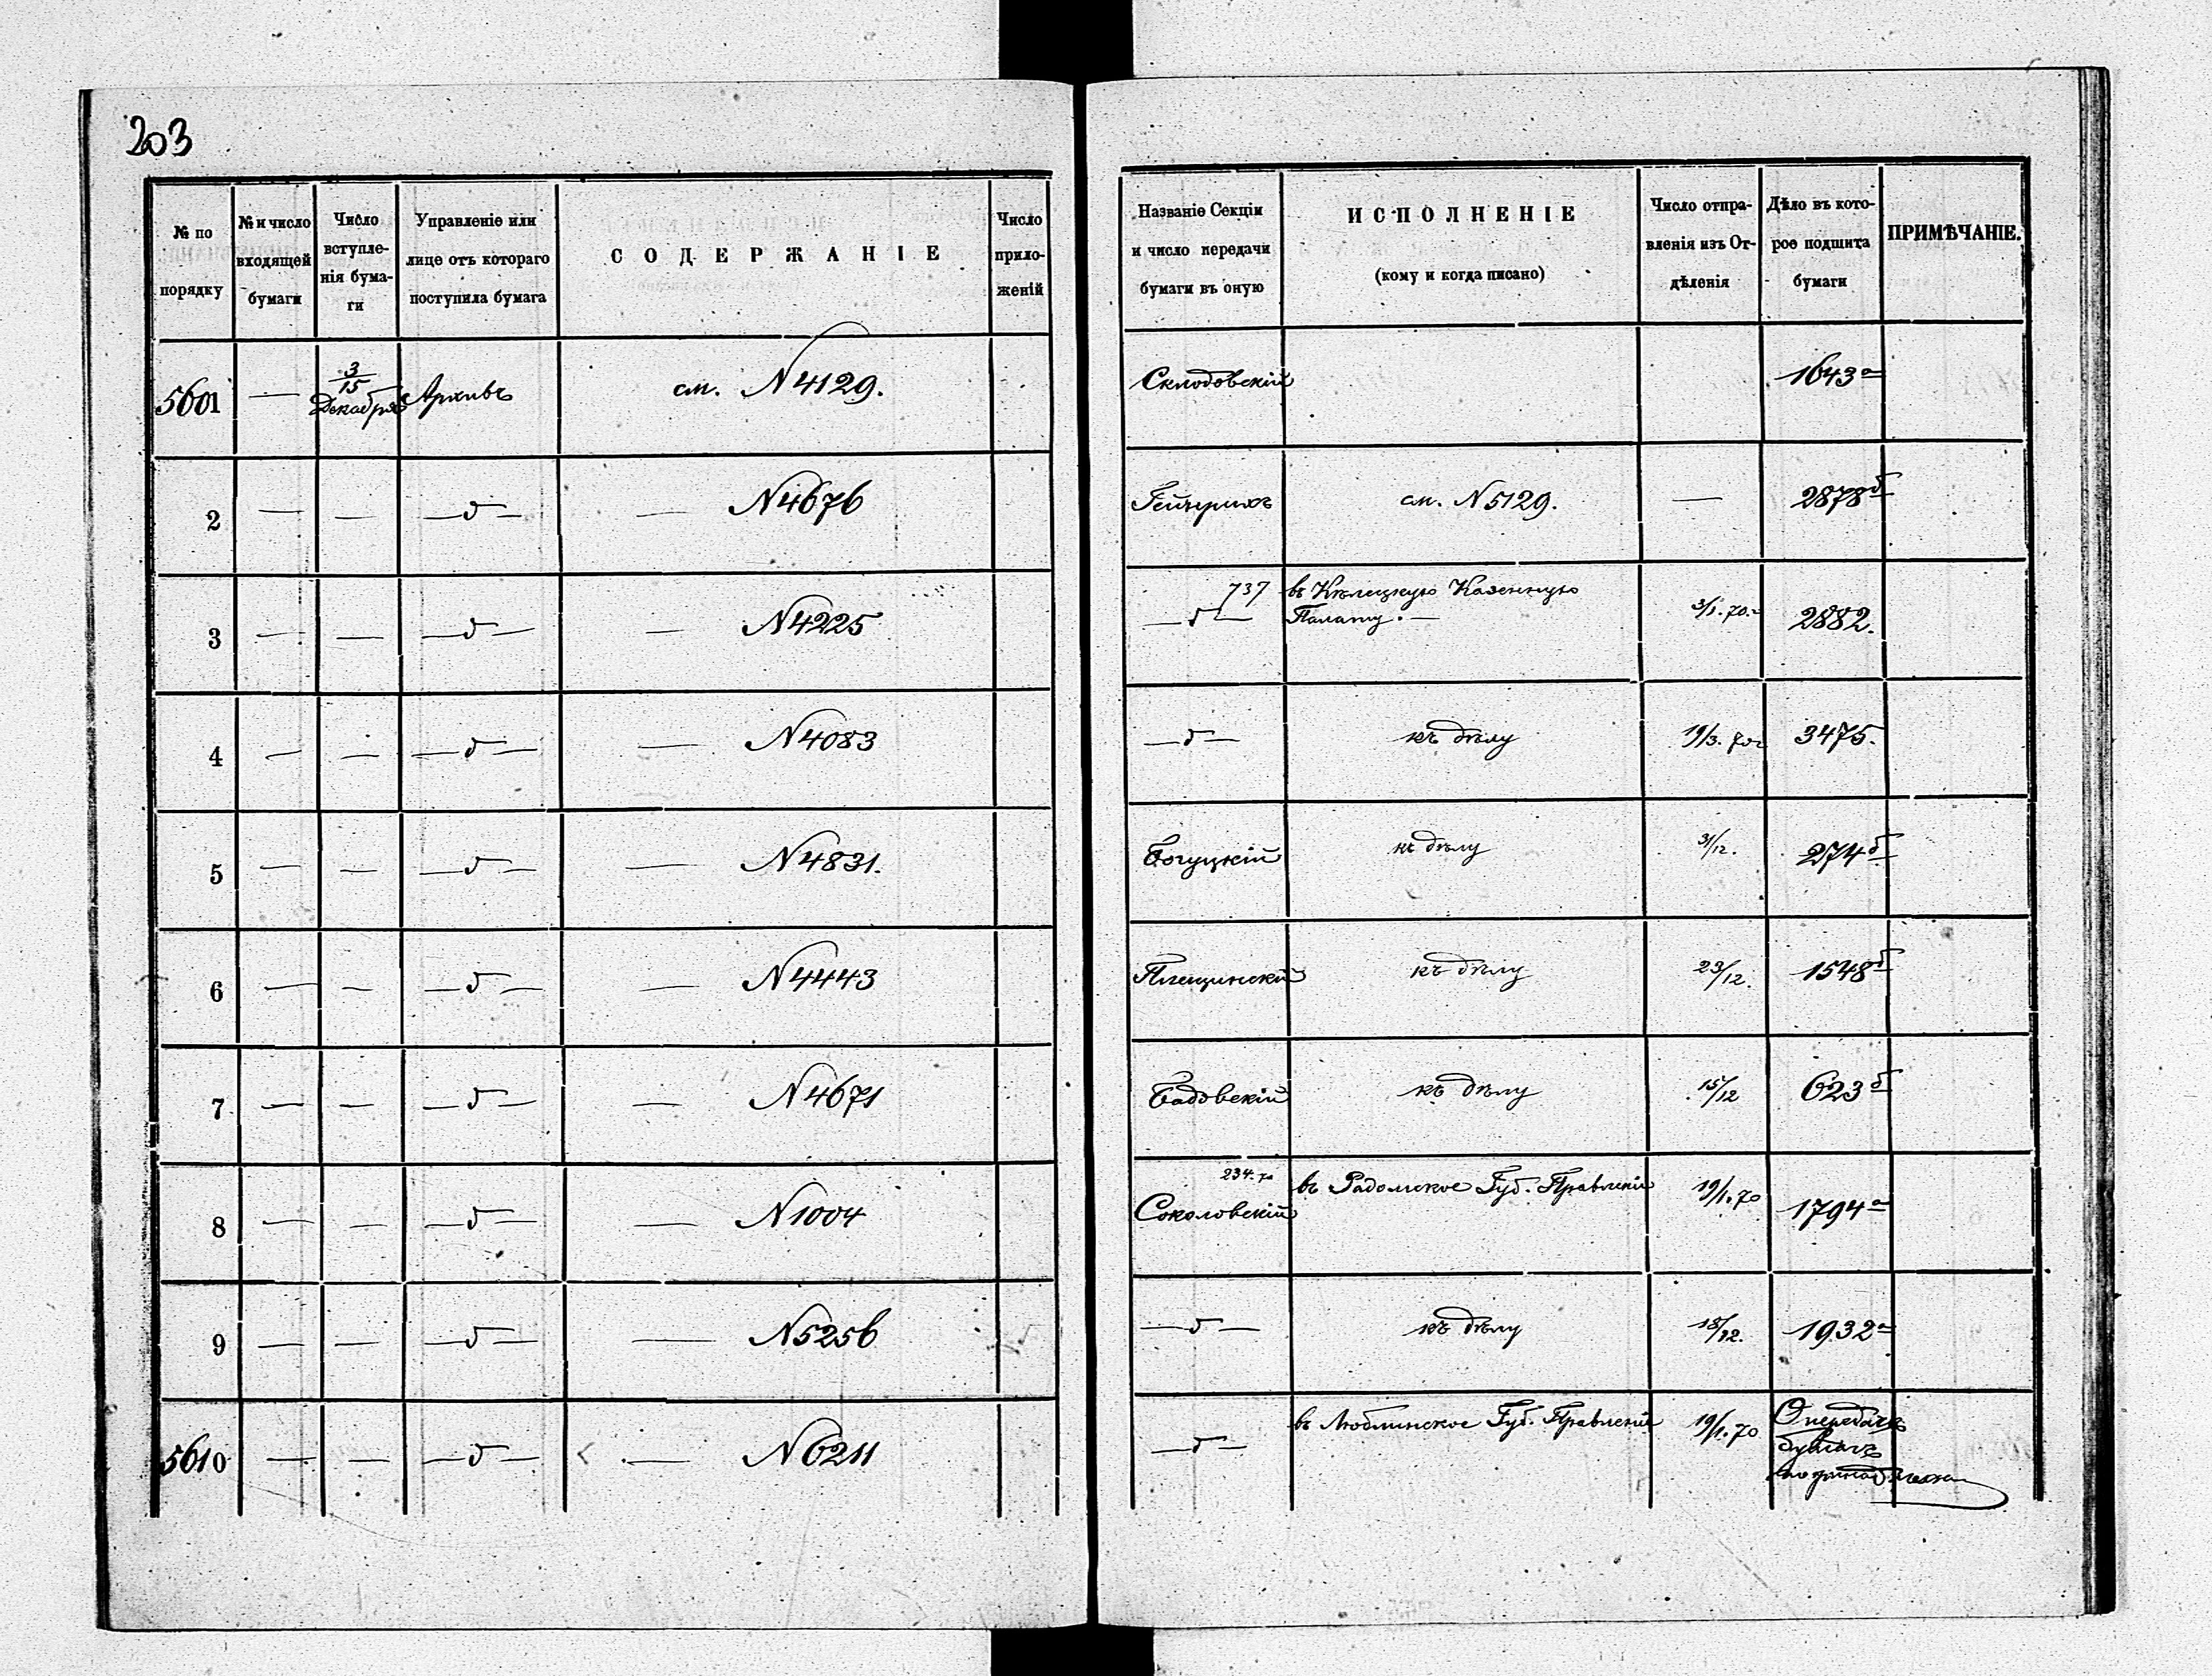 203
№ по порядку
№ и число входящей бумаги
Число вступленія бумаги
Управленіе или лице отъ котораго поступила бумага
СОДЕРЖАНІЕ
Число приложеній
Названіе Секціи и число передачи бумаги въ оную
ИСПОЛНЕНІЕ (кому и когда писано)
Число отправленія изъ Отдѣленія
Дѣло въ которое подшита бумаги
ПРИМѢЧАНІЕ.
5601 — 3/15 Декабря Архивъ см. N 4129. Склодовскій 1643 а
2 — — — д — — N 4676 см. N 5129. — 2878 б
3 — — — д — — N 4225 737 — д — въ Кѣлецкую Казенную Палату. — 3/1. 70. 2882.
4 — — — д — — N 4083 — д — къ дѣлу 19/3. 70 3475.
5 — — — д — — N 4831. Богуцкій къ дѣлу 31/12. 274 б
6 — — — д — — N 4443 Плещинскій къ дѣлу 23/12. 1548 б
7 — — — д — — N 4671 Бадовскій къ дѣлу 15/12 623 б
8 — — — д — — N 1004 234. 70 Соколовскій въ Радомское Губ. Правленіе 19/1. 70 1794 а
9 — — — д — — N 5256 — д — къ дѣлу 18/12. 1932 а
5610 — — — д — — N 6211 — д — въ Люблинское Губ. Правленіе 19/1. 70 О передачѣ бумагъ